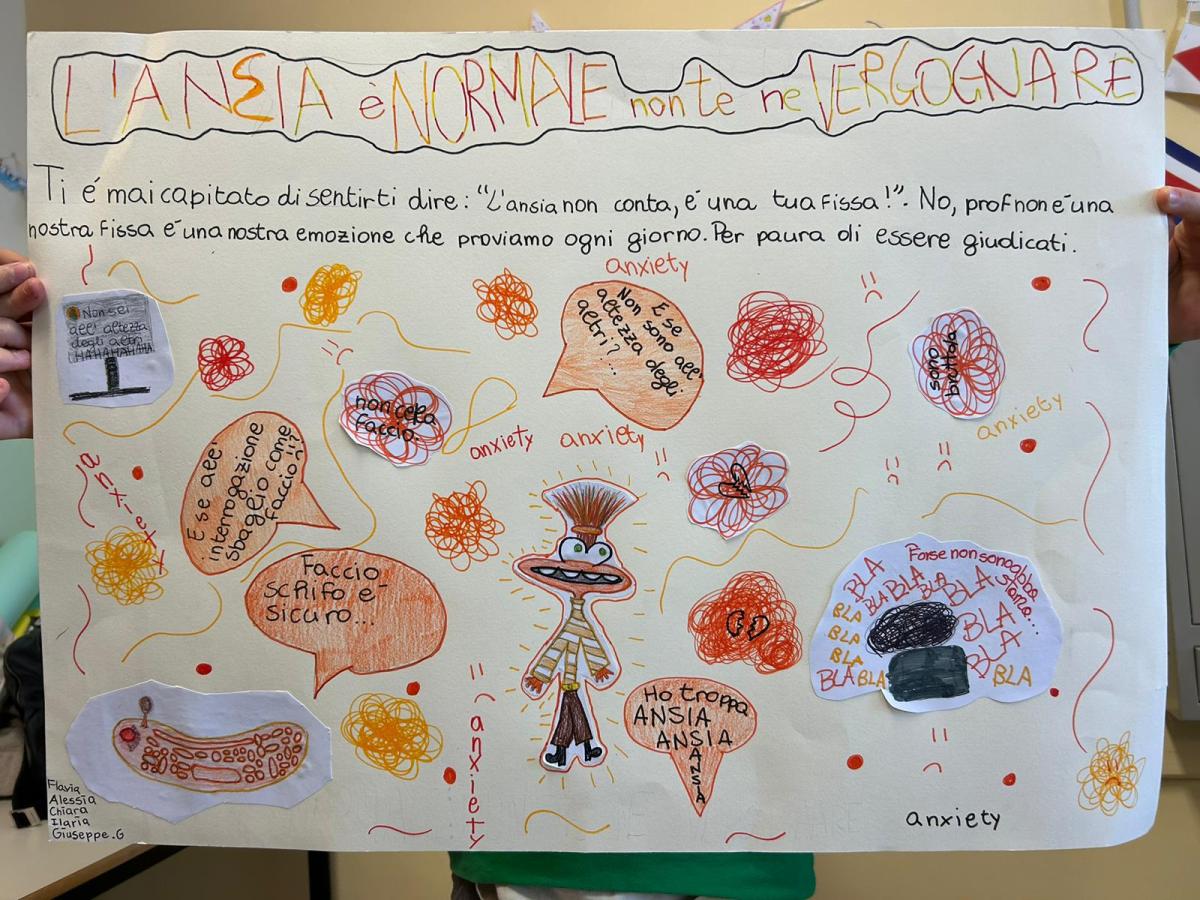 L'ANSIA è NORMALE non te ne VERGOGNARE
Ti é mai capitato di sentirti dire: "L'ansia non conta, é una tua fissa!". No, prof non é una
nostra fissa é una nostra emozione che proviamo ogni giorno. Per paura di essere giudicati.
anxiety
Non sei
all' altezza
degli altri
HAHAHAHAHA
E se
Non sono all'
altezza degli
altri?...
non ce la
faccio.
sono
brutto/a
anxiety
anxiety
anxiety
anxiety
E se all'
interrogazione
sbaglio come
faccio!!?
Faccio
schifo é
sicuro...
Forse non sono abba
stanza...
BLA
BLA
BLA
BLA
BLA
BLA
BLA
BLA
BLA
BLA
BLA
BLA
BLA
BLA
Ho troppa
ANSIA
ANSIA
ANSIA
anxiety
anxiety
Flavia
Alessia
Chiara
Ilaria
Giuseppe.G